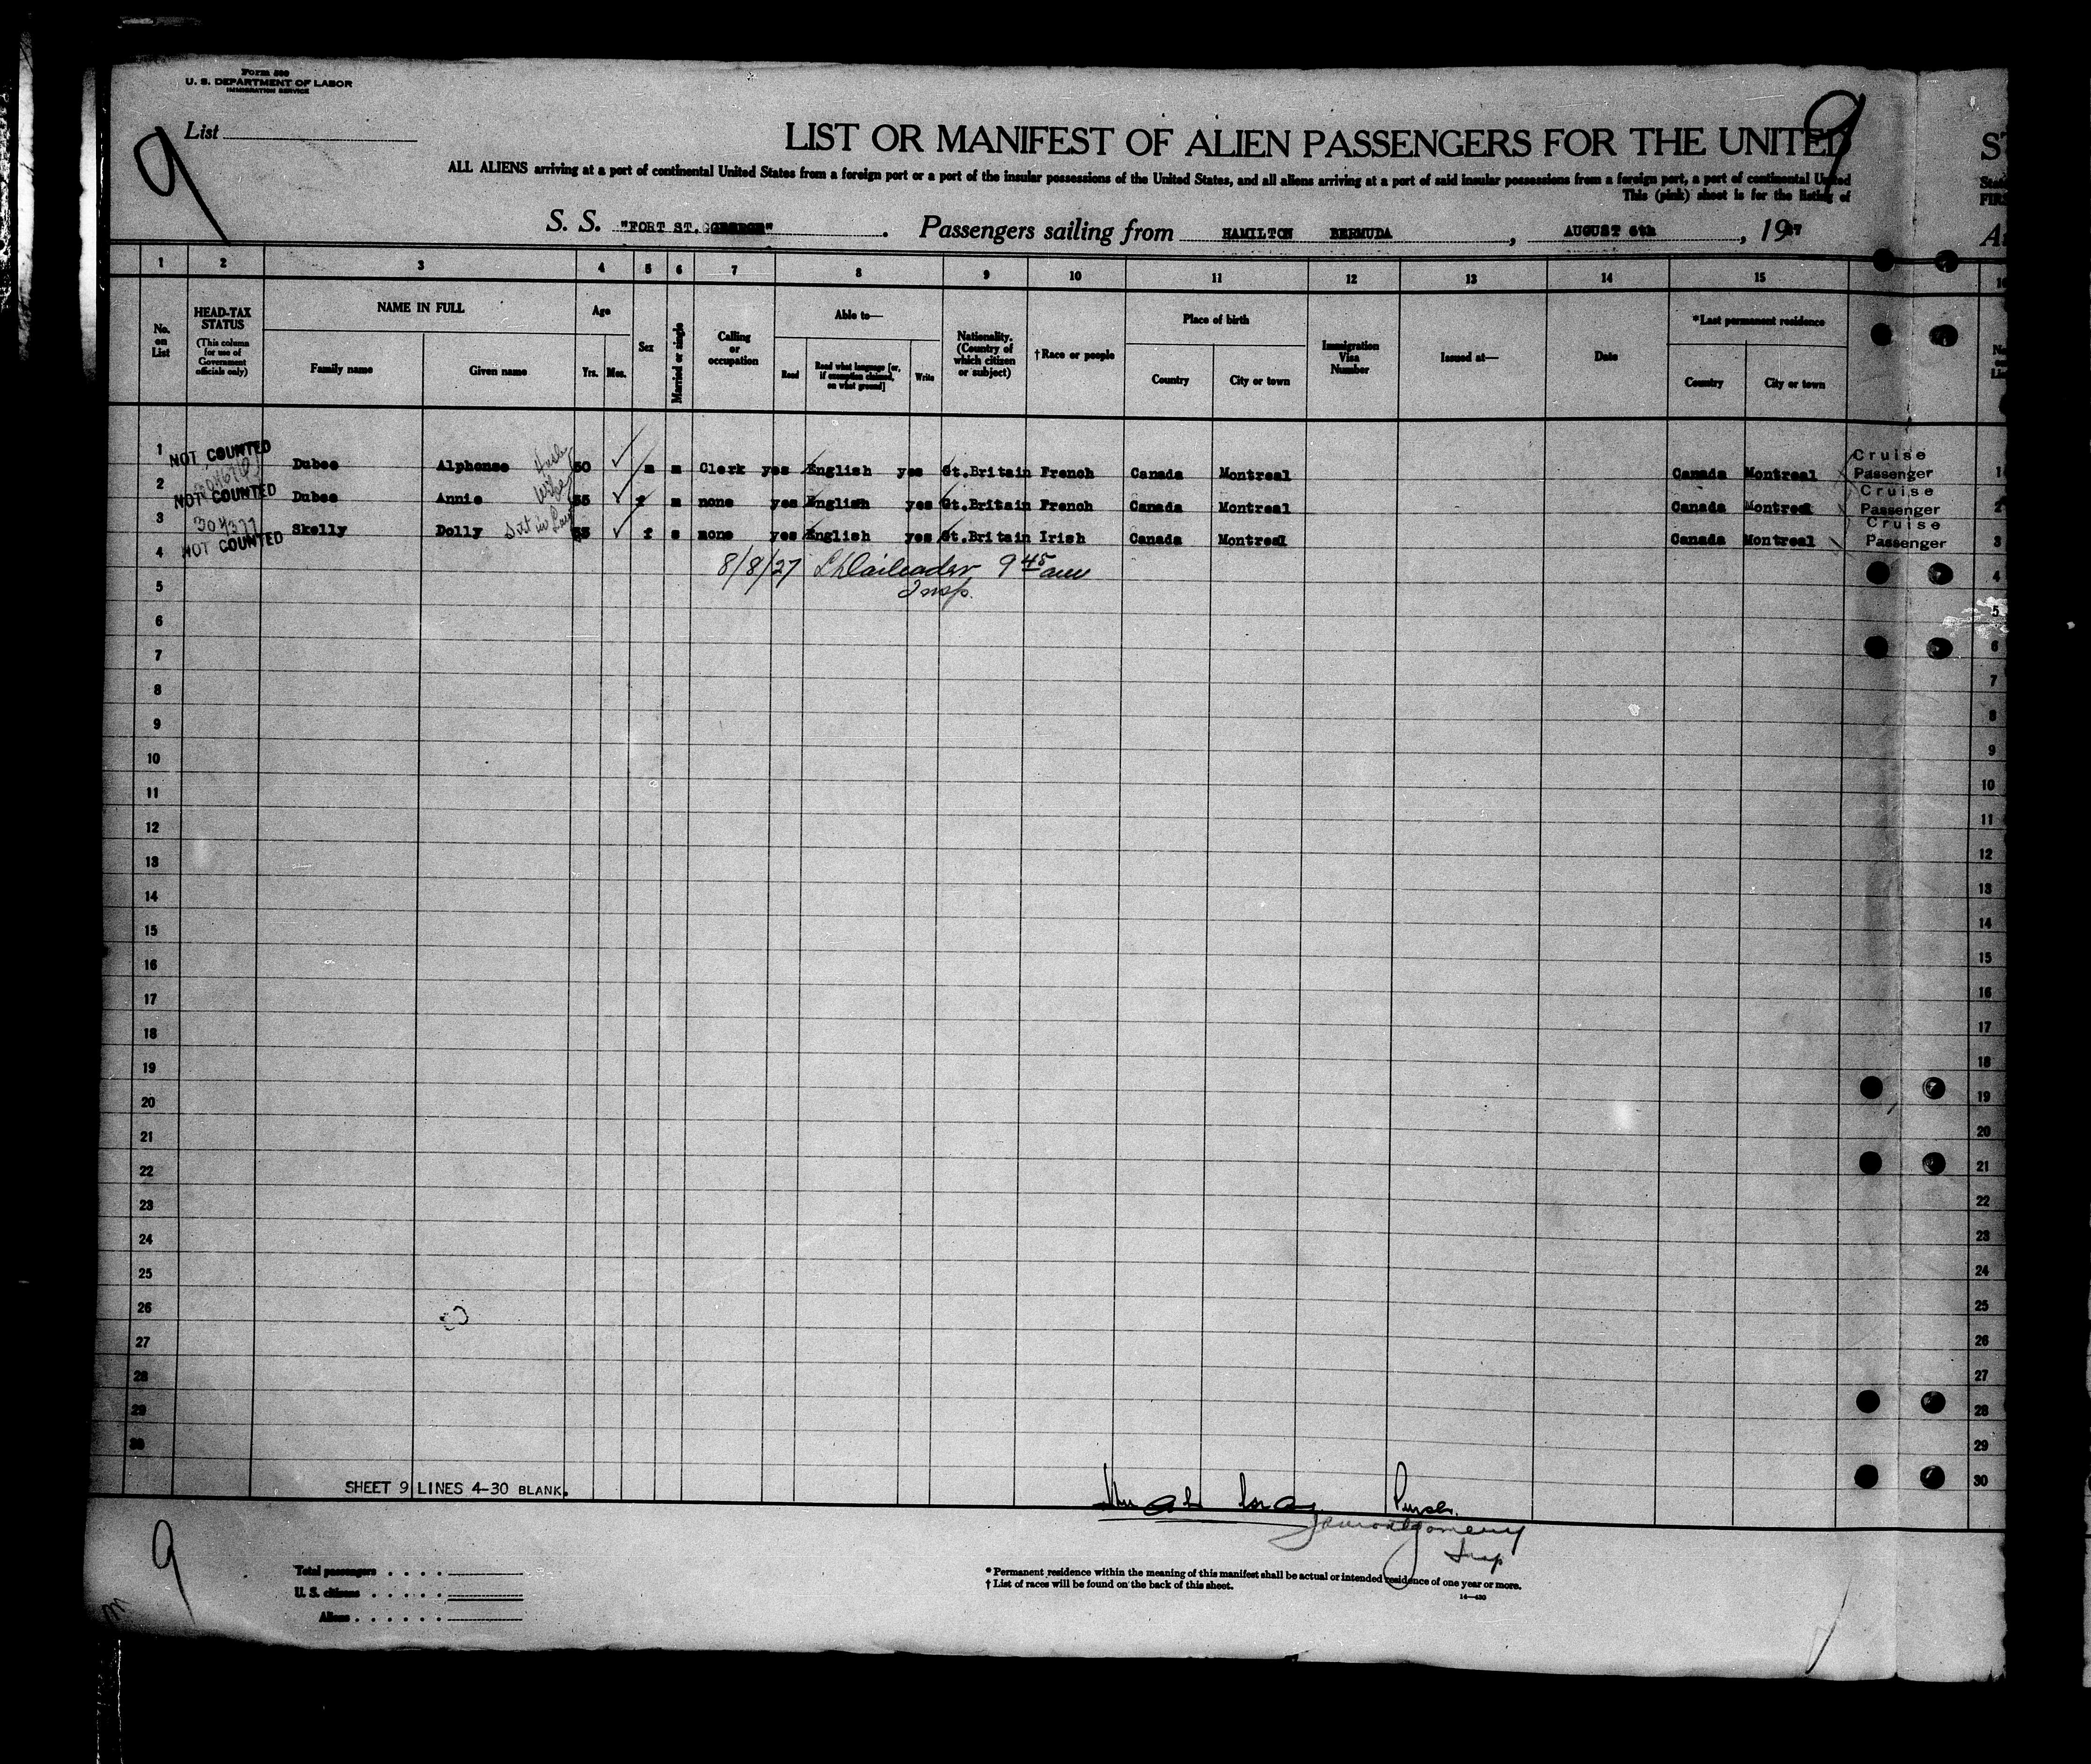 Form 500
U. S. DEPARTMENT OF LABOR
IMMIGRATION SERVICE
9
9
List
LIST OR MANIFEST OF ALIEN PASSENGERS FOR THE UNITED
ST
ALL ALIENS arriving at a port of continental United States from a foreign port or a port of the insular possessions of the United States, and all aliens arriving at a port of said insular possessions from a foreign port, a port of continental United
This (pink) sheet is for the listing of
S. S. "FORT ST. GEORGE". Passengers sailing from HAMILTON BERMUDA, AUGUST 6th, 1927
1 2 3 4 5 6 7 8 9 10 11 12 13 14 15
No. on List
HEAD-TAX STATUS (This column for use of Government officials only)
NAME IN FULL
Family name Given name
Age
Yrs. Mos.
Sex
Married or single
Calling or occupation
Able to—
Read Read what language [or, if exemption claimed, on what ground] Write
Nationality. (Country of which citizen or subject)
† Race or people
Place of birth
Country City or town
Immigration Visa Number
Issued at—
Date
*Last permanent residence
Country City or town
1 NOT COUNTED Dubee Alphonse 30 m m Clerk yes English yes Gt.Britain French Canada Montreal Canada Montreal Cruise Passenger 1
2 NOT COUNTED Dubee Annie Wife 35 f m none yes English yes Gt.Britain French Canada Montreal Canada Montreal Cruise Passenger 2
3 NOT COUNTED Skelly Dolly Sist in Law f s none yes English yes Gt.Britain Irish Canada Montreal Canada Montreal Cruise Passenger 3
4 8/8/27 9 45 am 4
Insp.
5 5
6 6
7 7
8 8
9 9
10 10
11 11
12 12
13 13
14 14
15 15
16 16
17 17
18 18
19 19
20 20
21 21
22 22
23 23
24 24
25 25
26 26
27 27
28 28
29 29
30 30
SHEET 9 LINES 4-30 BLANK.
Purser.
Montgomery
Insp
9
Total passengers
U. S. citizens
Aliens
* Permanent residence within the meaning of this manifest shall be actual or intended residence of one year or more.
† List of races will be found on the back of this sheet.
14—430